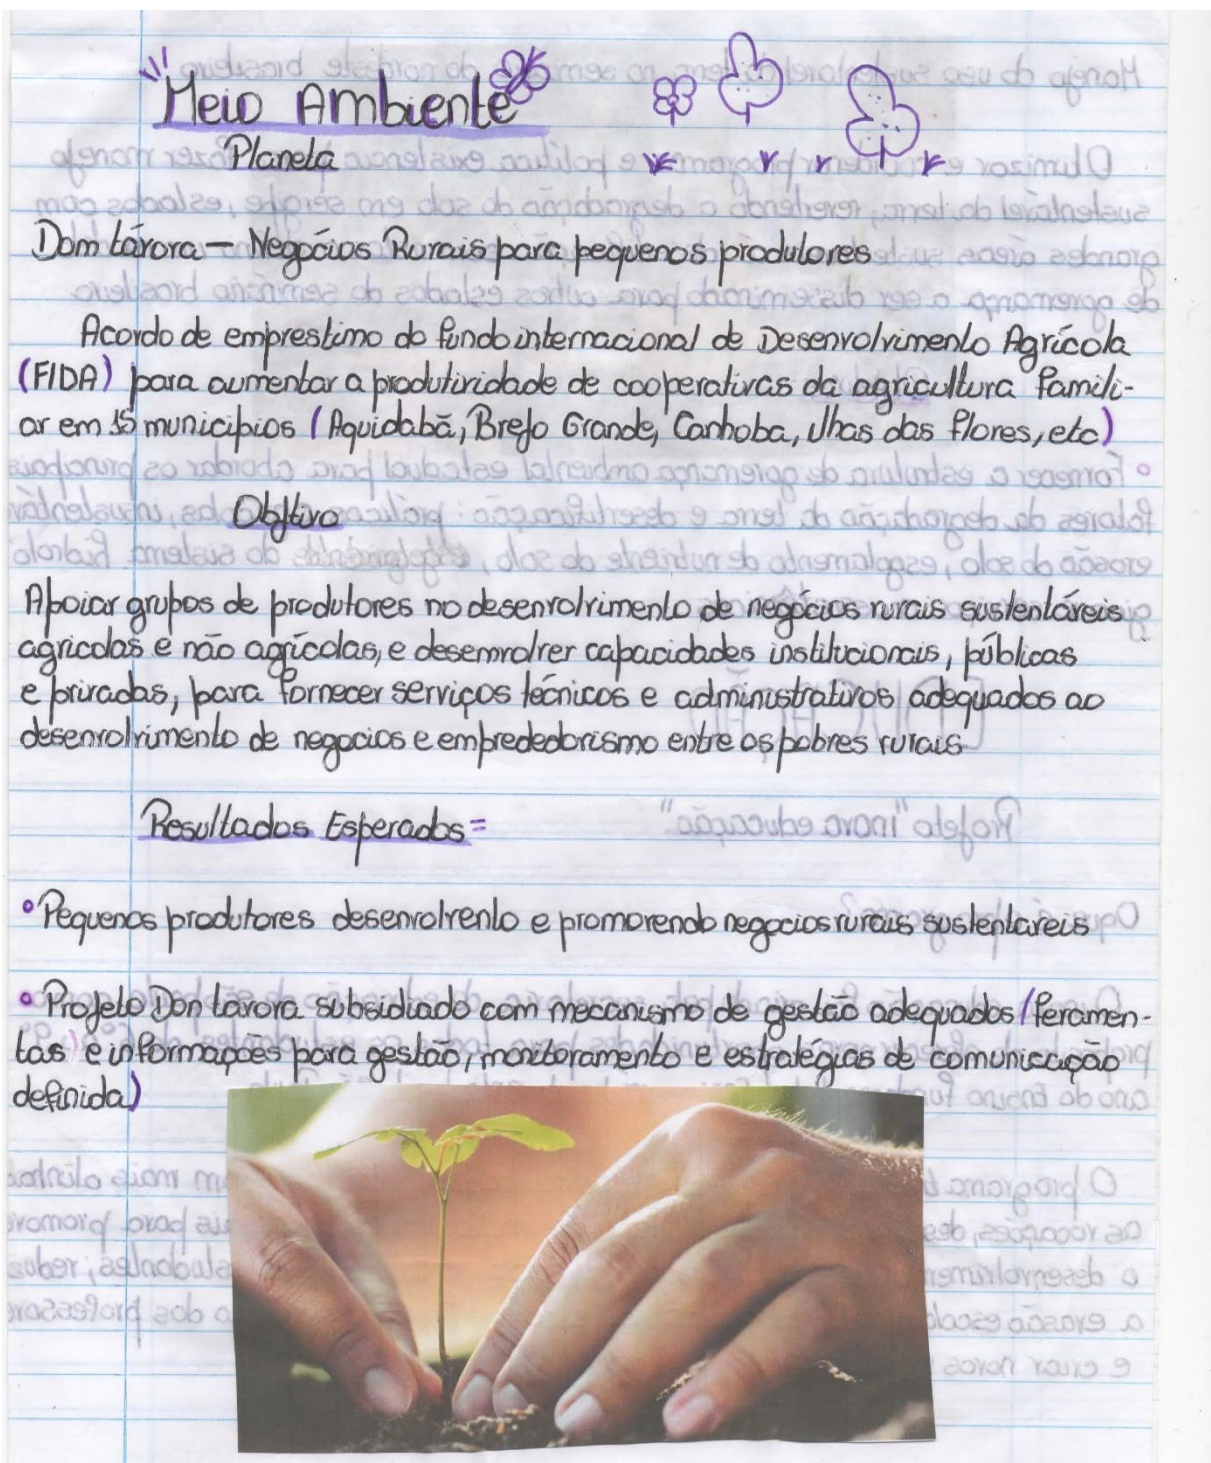 Meio Ambiente
Planeta
Dom távora - Negócios Rurais para pequenos produtores
Acordo de emprestimo do fundo internacional de Desenvolvimento Agrícola
(FIDA) para aumentar a produtividade de cooperativas da agricultura famili-
ar em 15 municípios (Aquidabã, Brejo Grande, Canhoba, Ilhas das flores, etc)
Objtivo
Apoiar grupos de produtores no desenvolvimento de negócios rurais sustentáveis
agricolas e não agrícolas, e desemvolver capacidades institucionais, públicas
e privadas, para fornecer serviços técnicos e administrativos adequados ao
desenvolvimento de negocios e emprededorismo entre os pobres rurais
Resultados Esperados=
• Pequenos produtores desenvolvento e promovendo negocios rurais sustentaveis
• Projeto Don tavora subsidiado com mecanismo de gestão adequados (feramen-
tas e informações para gestão, monitoramento e estratégias de comunicação
definida)